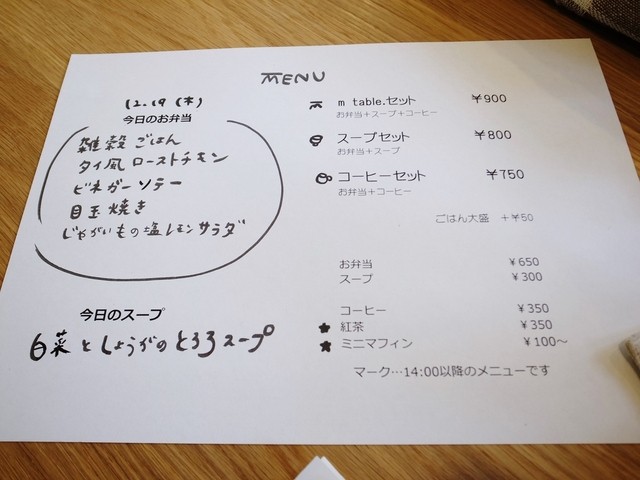 MENU
12.19 (木)
今日のお弁当
雑穀ごはん
タイ風ローストチキン
ビネガーソテー
目玉焼き
じゃがいもの塩レモンサラダ
今日のスープ
白菜としょうがのとろろスープ
m table.セット ￥900
お弁当＋スープ＋コーヒー
スープセット ￥800
お弁当＋スープ
コーヒーセット ￥750
お弁当＋コーヒー
ごはん大盛 ＋￥50
お弁当 ￥650
スープ ￥300
コーヒー ￥350
★ 紅茶 ￥350
★ ミニマフィン ￥100～
マーク…14:00以降のメニューです